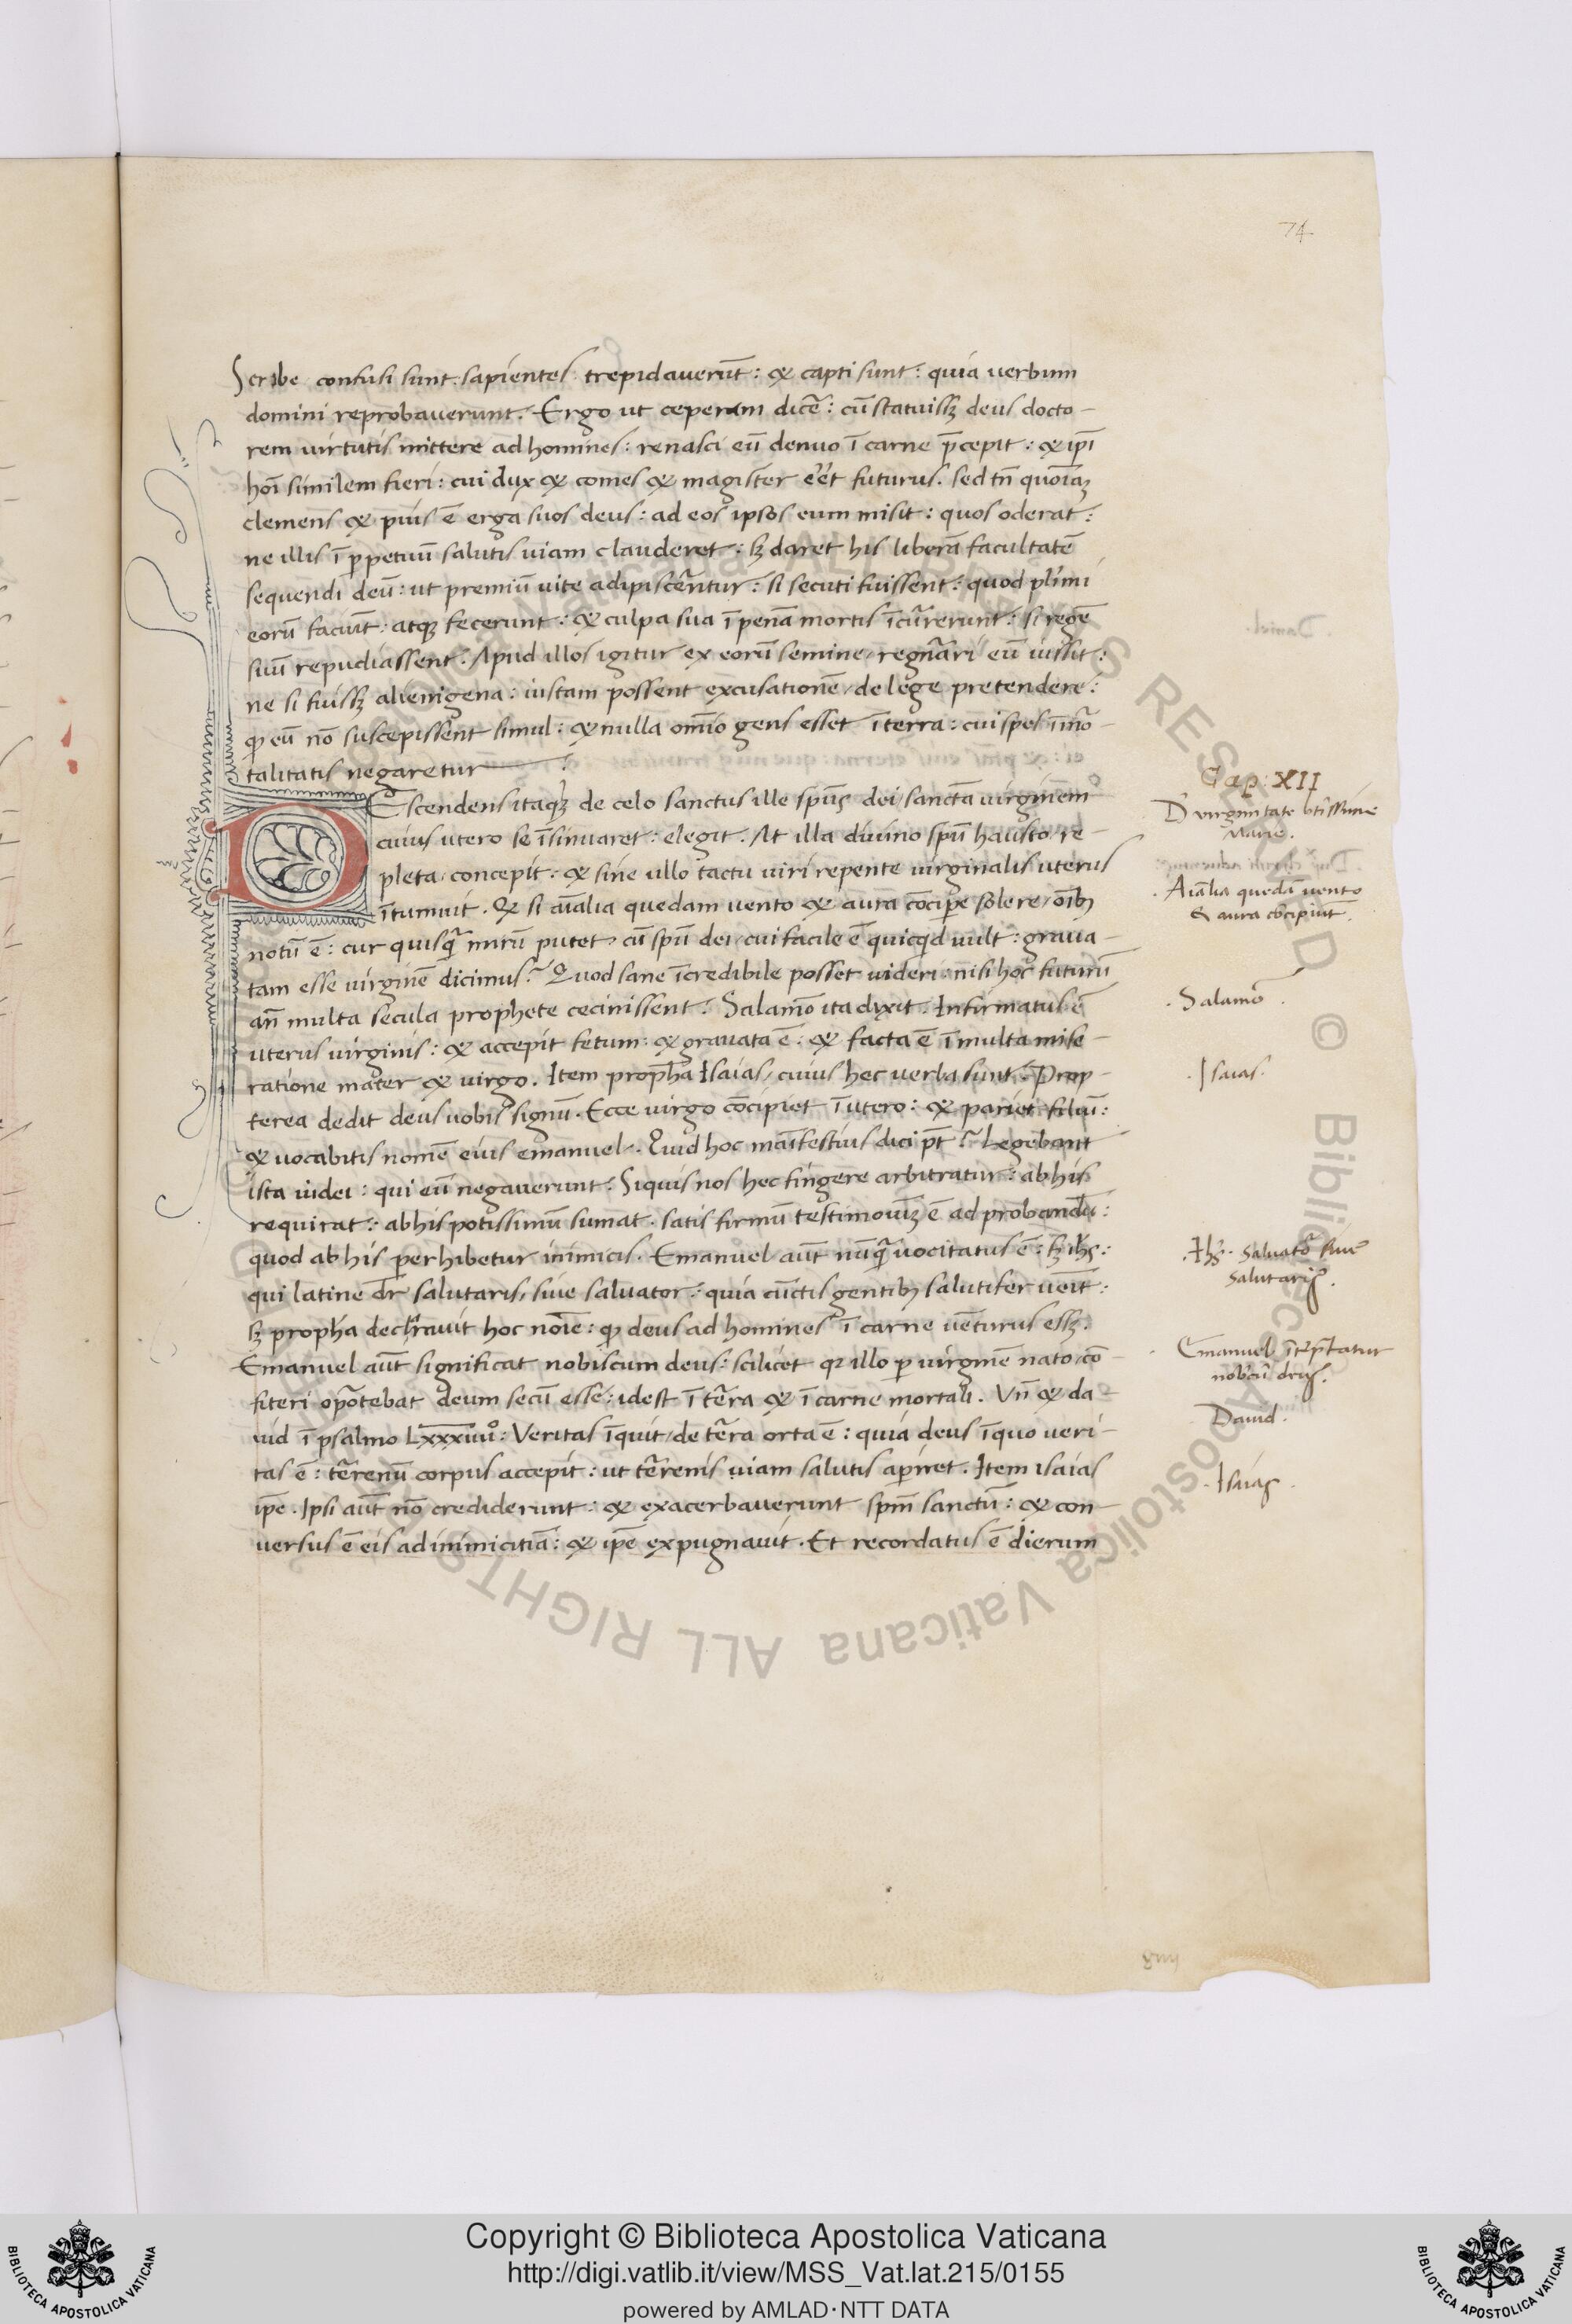 74
Scribe confusi sunt. sapientes trepidauerūt: & capti sunt: quia uerbum
domini reprobauerunt. Ergo ut ceperam dicē: cū statuissꝫ deus docto-
rem uirtutis mittere ad homines: renasci eū denuo ī carne p̄cepit: & ip̄i
hoī similem fieri: cui dux & comes & magister eēt futurus. sed tn̄ quoīaꝫ
clemens & pius ē erga suos deus: ad eos ipsos eum misit: quos oderat:
ne illis ī ꝑpetuū salutis uiam clauderet: sꝫ daret his liberā facultatē
sequendi deū: ut premiū uite adipiscerētur: si secuti fuissent: quod pl̄imi
eorū faciūt: atqꝫ fecerunt: & culpa sua ī penā mortis īcurrerunt: si regē
suū repudiassent. Apud illos igitur ex eorū semine regn̄ari eū iussit:
ne si fuissꝫ alienigena: iustam possent excusationē de lege pretendere:
ꝙ eū nō suscepissent simul: & nulla omīo gens esset ī terra: cui spes īmōr-
talitatis negaretur
DEscendens itaqꝫ de celo sanctus ille spūs dei sanctā uirginem
cuius utero se īsinuaret: elegit. At illa diuino spū hausto re-
pleta concepit: & sine ullo tactu uiri repente uirginalis uterus
ītumuit. Q̄ si aīalia quedam uento & aura cōciꝑe solere oībꝫ
notū ē: cur quisq̄ mirū putet cū spū dei cui facile ē quicqd uult: graua-
tam esse uirginē dicimus? Quod sane īcredibile posset uideri: nisi hoc futurū
an̄ multa secula prophete cecinissent. Salamō ita dixit. Infirmatus ē
uterus uirginis: & accepit fetum: & grauata ē: & facta ē ī multa mise-
ratione mater & uirgo. Item proph̄a Isaias cuius hec uerba sunt. Prop-
terea dedit deus uobis signū. Ecce uirgo cōcipiet ī utero: & pariet filiū:
& uocabitis nomē eius emanuel. Quid hoc maīfestius dici pt̄? Legebant
ista iudei: qui eū negauerunt. Siquis nos hec fingere arbitratur: ab his
requirat: ab his potissimū sumat. satis firmū testimoniūꝫ ē ad probandū:
quod ab his perhibetur inimicis. Emanuel aūt nūq̄ uocitatus ē: sꝫ ihs̄:
qui latine dr̄ salutaris, siue saluator: quia cūctis gentibꝫ salutifer uenīt:
sꝫ proph̄a declarauit hoc noīe: ꝙ deus ad homines ī carne uēturus essꝫ.
Emanuel aūt significat nobiscum deus: scilicet qꝫ illo ꝑ uirginē nato cō-
fiteri oportebat deum secū esse: idest ī tērra & ī carne mortali. Vn̄ & da-
uid ī psalmo Lxxxiiiiº: Veritas īquit de tērra orta ē: quia deus ī quo ueri-
tas ē: tērrenū corpus accepit: ut tērrenis uiam salutis aꝑiret. Item isaias
ip̄e. Ipsi aūt nō crediderunt: & exacerbauerunt spm̄ sanctū: & con-
uersus ē eis ad inimicitiā: & ip̄e expugnauit. Et recordatus ē dierum
Cap: XII
D uirginitate btissime
Marie.
Aīalia quedā uento
& aura cōcipiūt.
Salamō.
Isaias.
Ihs̄. saluator siue
salutaris.
Emanuel īterp̄tatur
nobcū deus.
Dauid.
Isaias.
Copyright © Biblioteca Apostolica Vaticana
http://digi.vatlib.it/view/MSS_Vat.lat.215/0155
powered by AMLAD·NTT DATA
BIBLIOTECA APOSTOLICA VATICANA
BIBLIOTECA APOSTOLICA VATICANA
Biblioteca Apostolica Vaticana ALL RIGHTS RESERVED ©